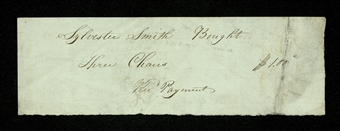 Sylvester Smith Bought
Three Chairs $1.00
Rec Payment